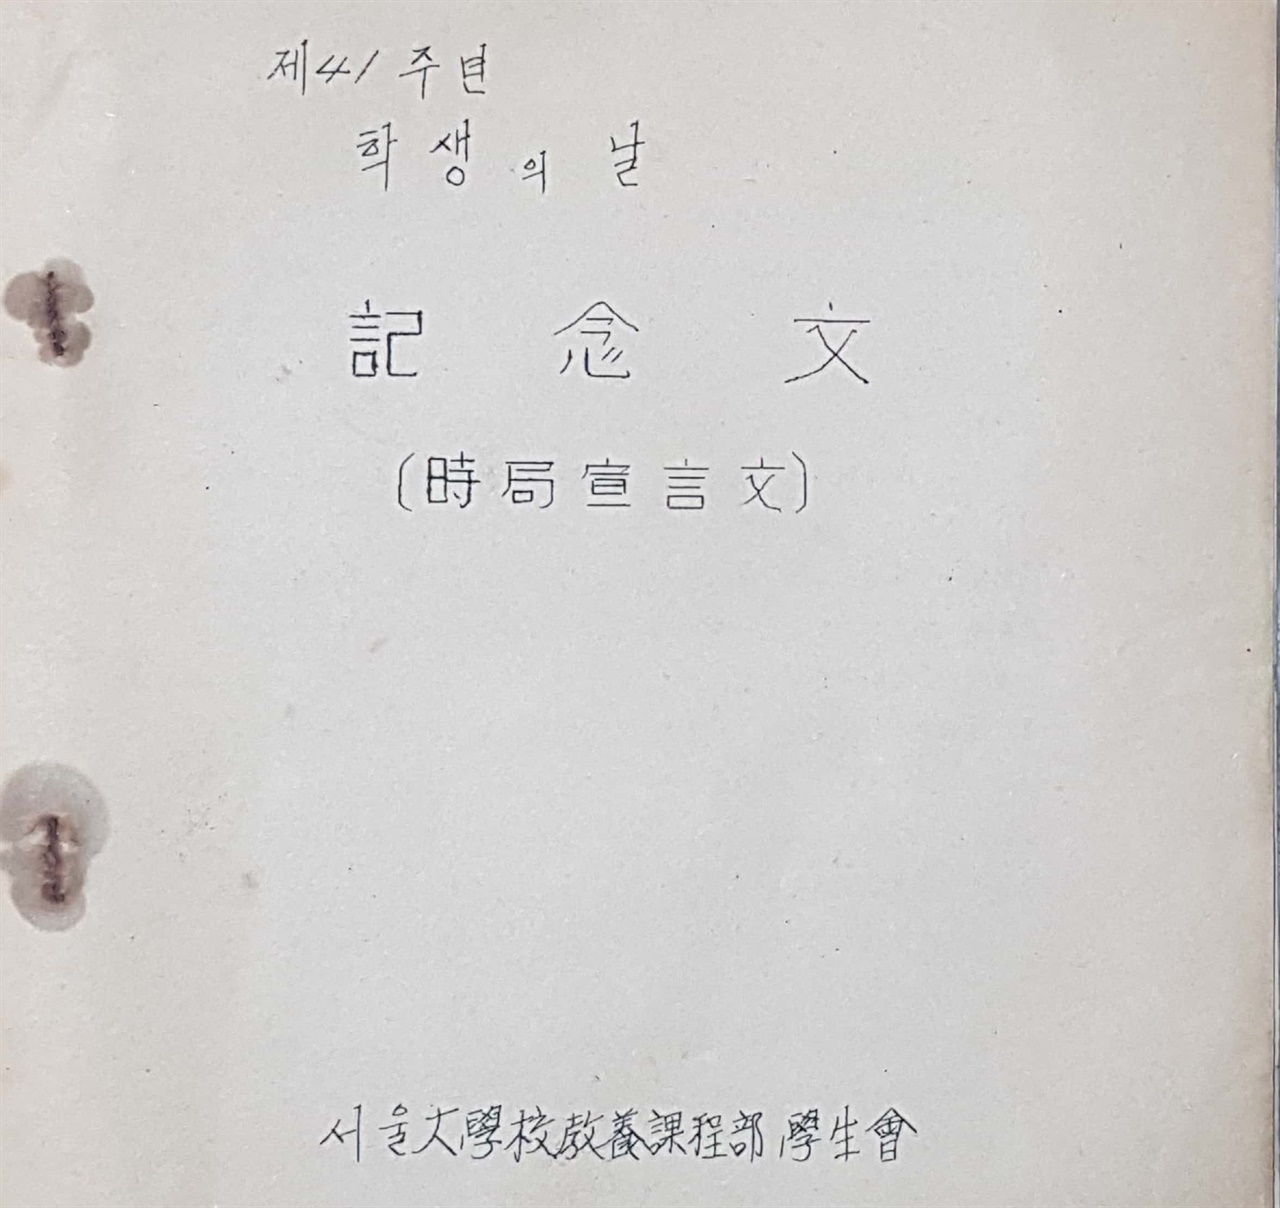 제41주년
학생의 날
記念文
(時局宣言文)
서울大學校敎養課程部 學生會